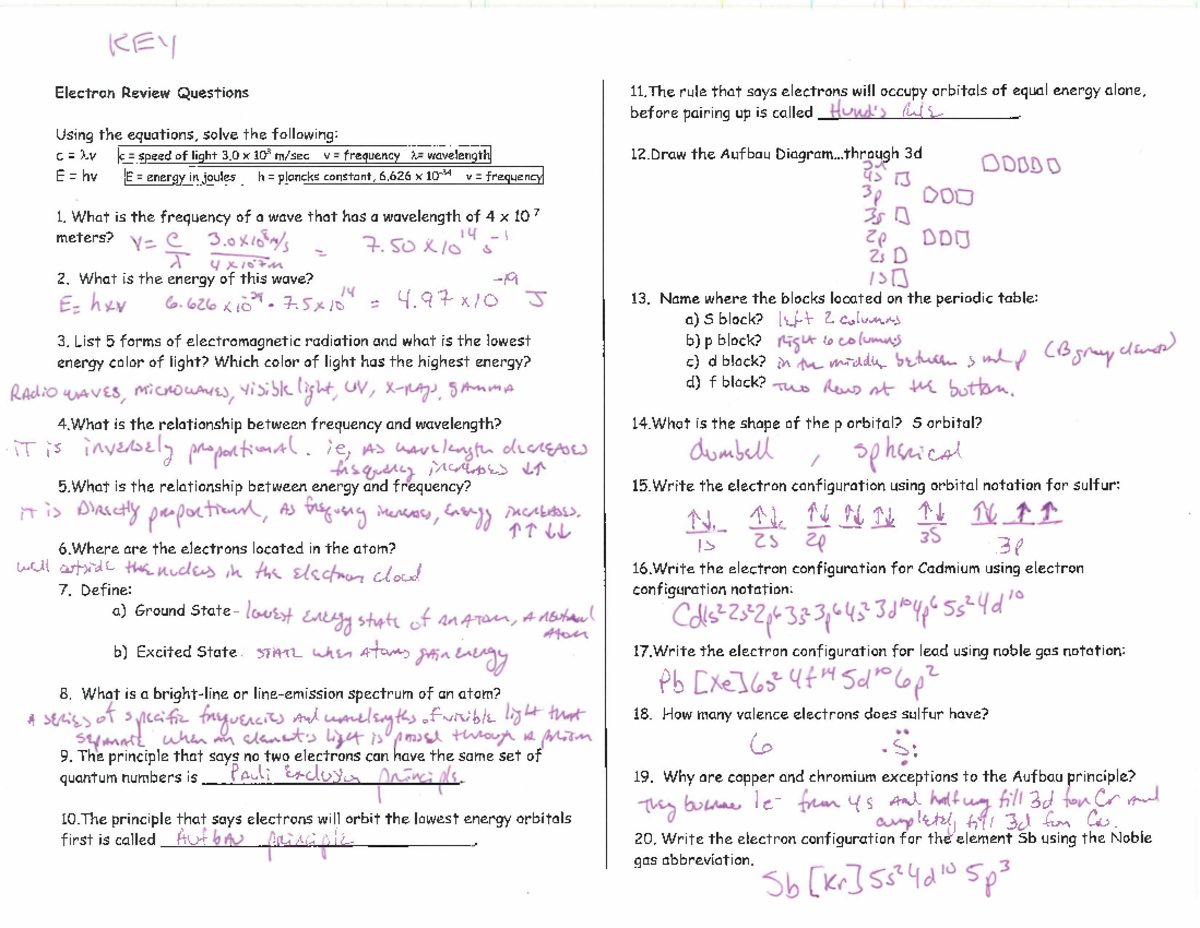 KEY
Electron Review Questions
Using the equations, solve the following:
c = λv c = speed of light 3.0 x 10⁸ m/sec v = frequency λ= wavelength
E = hv E = energy in joules h = plancks constant, 6.626 x 10⁻³⁴ v = frequency
1. What is the frequency of a wave that has a wavelength of 4 x 10 ⁷
meters? V= C/λ 3.0x10⁸m/s / 4x10⁻⁷m = 7.50 x 10¹⁴ s⁻¹
2. What is the energy of this wave?
E= hxv 6.626 x10⁻³⁴ · 7.5x10¹⁴ = 4.97 x10⁻¹⁹ J
3. List 5 forms of electromagnetic radiation and what is the lowest
energy color of light? Which color of light has the highest energy?
Radio waves, microwaves, visible light, UV, X-rays, gamma
4.What is the relationship between frequency and wavelength?
IT is inversely proportional. ie, As wavelength decreases
frequency increases ↓↑
5.What is the relationship between energy and frequency?
IT is Directly proportional, As frequency increases, Energy increases.
↑↑ ↓↓
6.Where are the electrons located in the atom?
well outside the nucleus in the electron cloud
7. Define:
a) Ground State - lowest energy state of an Atom, A neutral
Atom
b) Excited State - STATE when Atoms gain energy
8. What is a bright-line or line-emission spectrum of an atom?
A series of specific frequencies and wavelengths of visible light that
separate when an element's light is passed through a prism
9. The principle that says no two electrons can have the same set of
quantum numbers is Pauli Exclusion principle.
10.The principle that says electrons will orbit the lowest energy orbitals
first is called Aufbau principle.
11.The rule that says electrons will occupy orbitals of equal energy alone,
before pairing up is called Hund's Rule.
12.Draw the Aufbau Diagram...through 3d
3d
4s
3p
3s
2p
2s
1s
13. Name where the blocks located on the periodic table:
a) S block? left 2 columns
b) p block? right 6 columns
c) d block? in the middle between s and p (B group elements)
d) f block? Two Rows at the bottom.
14.What is the shape of the p orbital? S orbital?
dumbell , spherical
15.Write the electron configuration using orbital notation for sulfur:
↑↓ ↑↓ ↑↓ ↑↓ ↑↓ ↑↓ ↑↓ ↑ ↑
1s 2s 2p 3s 3p
16.Write the electron configuration for Cadmium using electron
configuration notation:
Cd1s²2s²2p⁶3s²3p⁶4s²3d¹⁰4p⁶5s²4d¹⁰
17.Write the electron configuration for lead using noble gas notation:
Pb [Xe]6s²4f¹⁴5d¹⁰6p²
18. How many valence electrons does sulfur have?
6 S
19. Why are copper and chromium exceptions to the Aufbau principle?
They borrow 1e⁻ from 4s and halfway fill 3d for Cr and
completely fill 3d for Cu.
20. Write the electron configuration for the element Sb using the Noble
gas abbreviation.
Sb [Kr]5s²4d¹⁰5p³